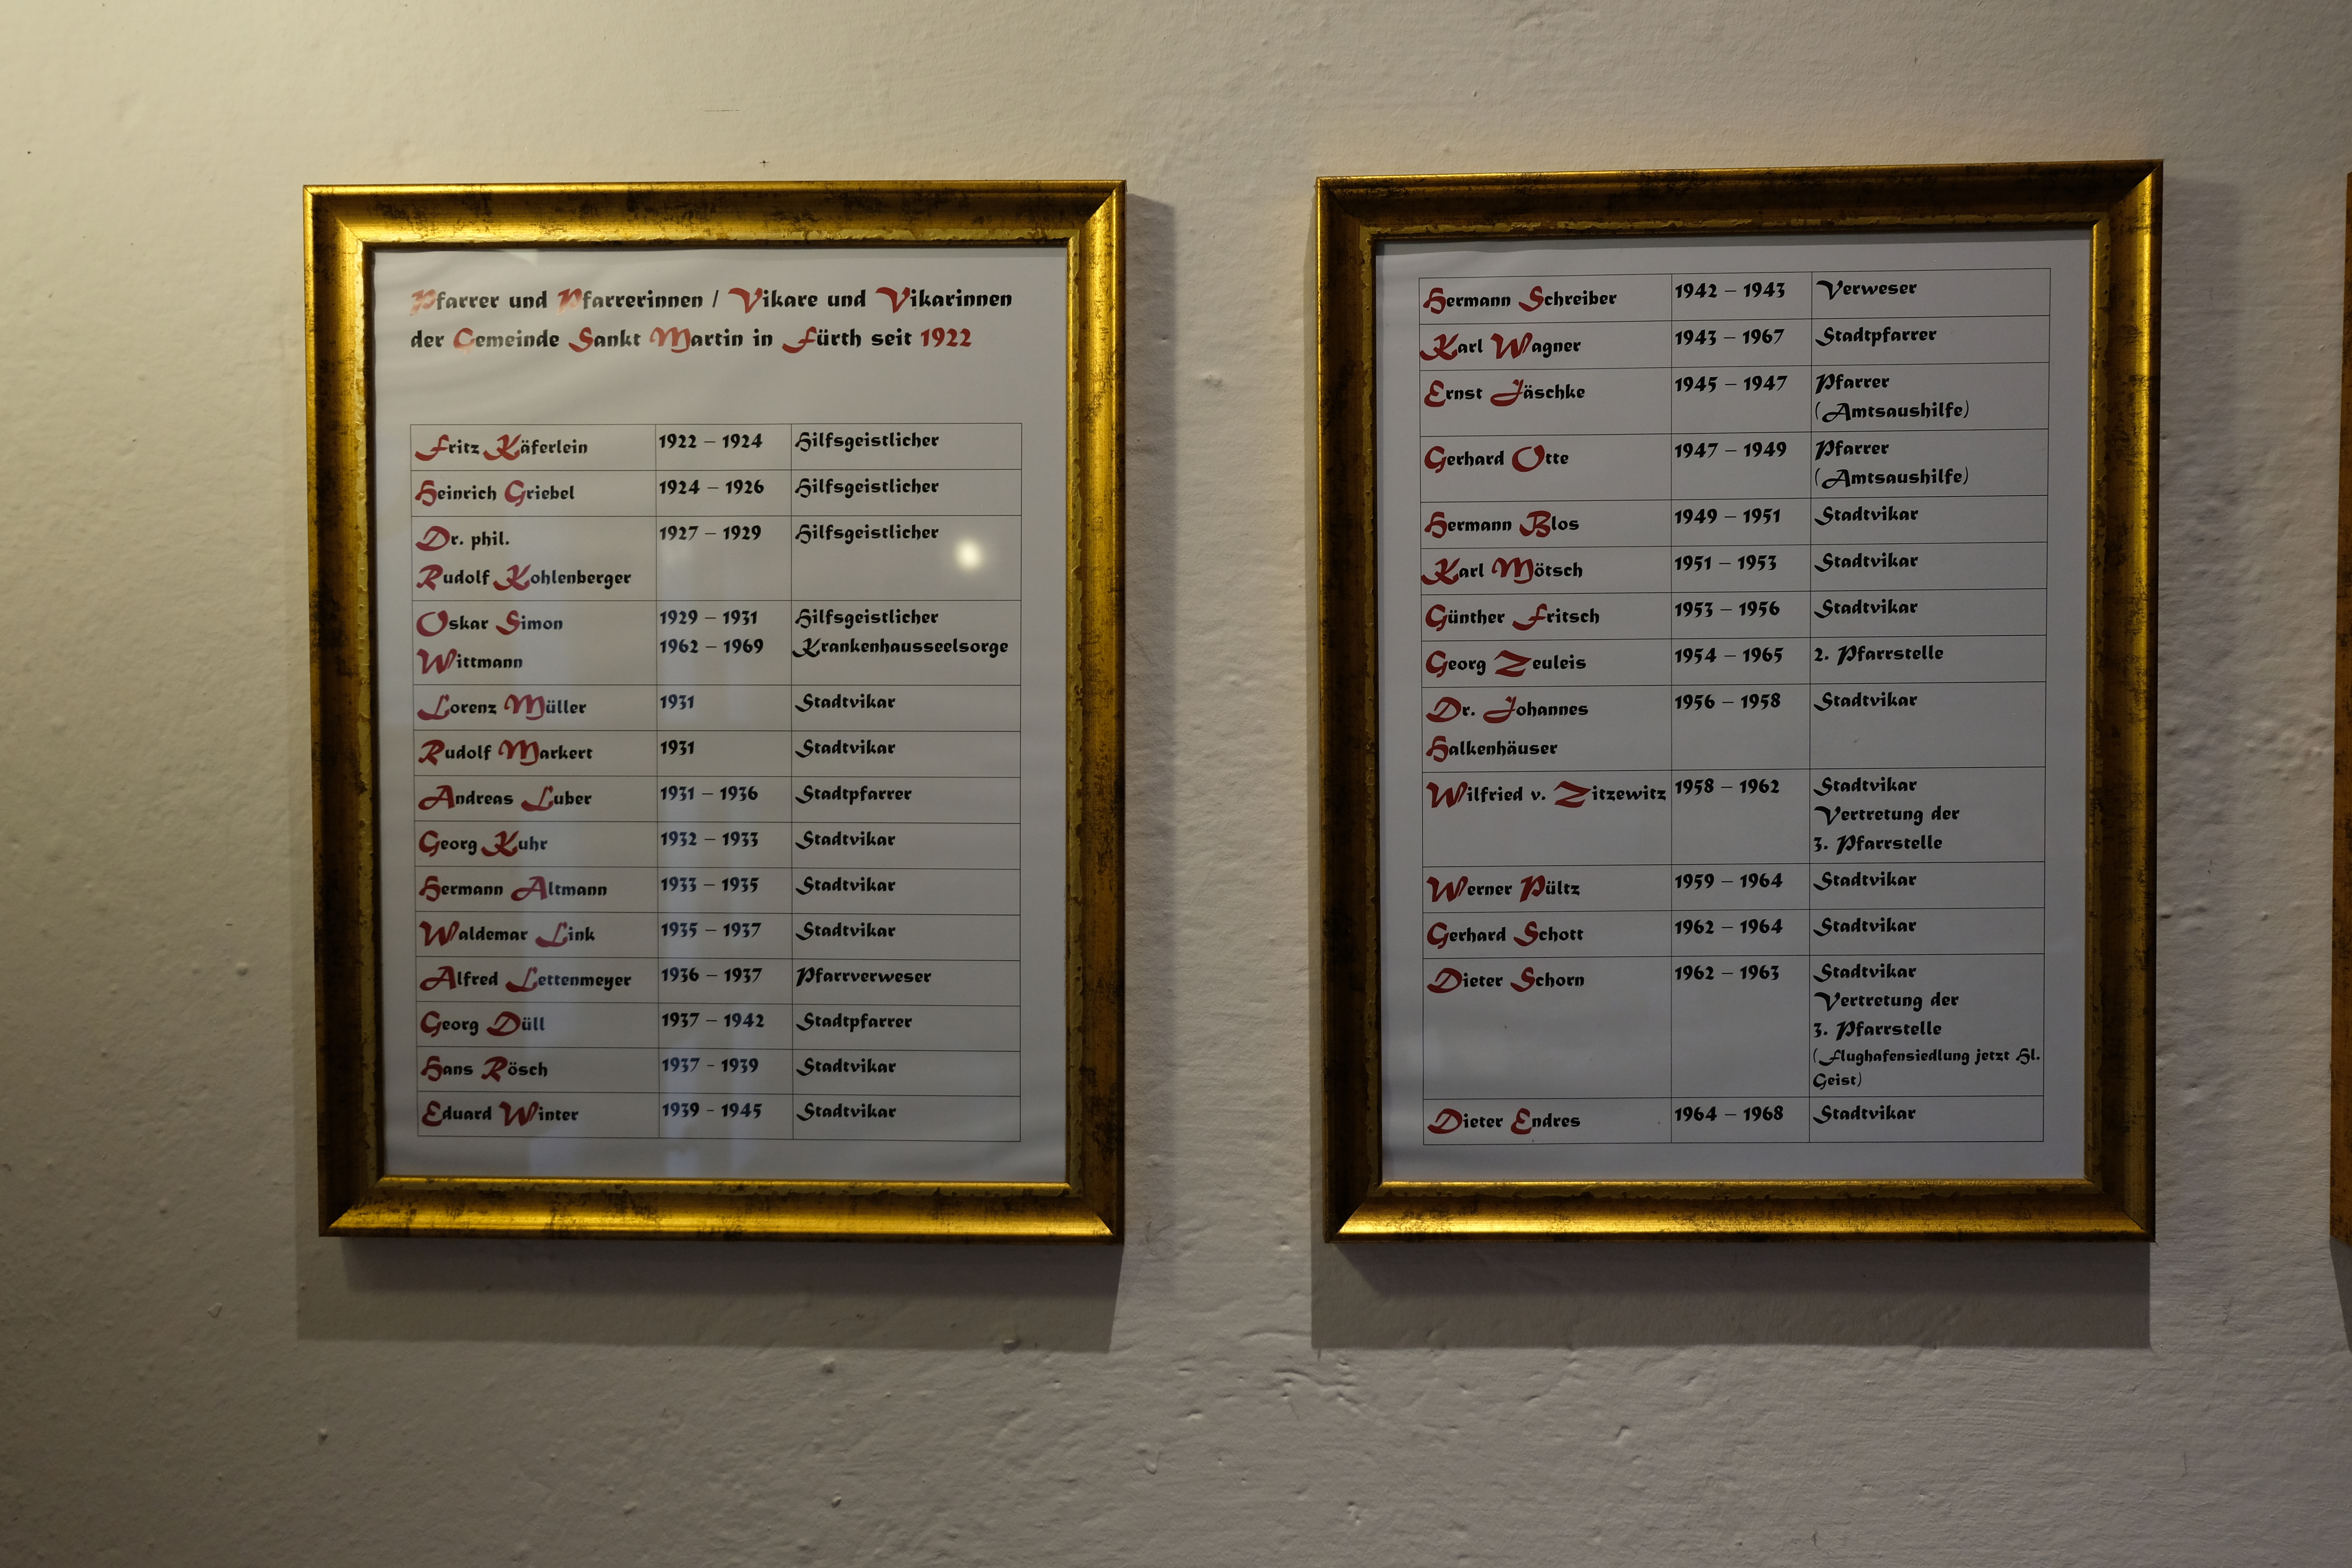 Pfarrer und Pfarrerinnen / Vikare und Vikarinnen
der Gemeinde Sankt Martin in Fürth seit 1922
Fritz Käferlein 1922 – 1924 Hilfsgeistlicher
Heinrich Griebel 1924 – 1926 Hilfsgeistlicher
Dr. phil. 1927 – 1929 Hilfsgeistlicher
Rudolf Kohlenberger
Oskar Simon 1929 – 1931 Hilfsgeistlicher
1962 – 1969 Krankenhausseelsorge
Wittmann
Lorenz Müller 1931 Stadtvikar
Rudolf Markert 1931 Stadtvikar
Andreas Luber 1931 – 1936 Stadtpfarrer
Georg Kuhr 1932 – 1933 Stadtvikar
Hermann Altmann 1933 – 1935 Stadtvikar
Waldemar Link 1935 – 1937 Stadtvikar
Alfred Lettenmeyer 1936 – 1937 Pfarrverweser
Georg Düll 1937 – 1942 Stadtpfarrer
Hans Rösch 1937 - 1939 Stadtvikar
Eduard Winter 1939 - 1945 Stadtvikar
Hermann Schreiber 1942 – 1943 Verweser
Karl Wagner 1943 – 1967 Stadtpfarrer
Ernst Jäschke 1945 – 1947 Pfarrer
(Amtsaushilfe)
Gerhard Otte 1947 – 1949 Pfarrer
(Amtsaushilfe)
Hermann Blos 1949 – 1951 Stadtvikar
Karl Mötsch 1951 – 1953 Stadtvikar
Günther Fritsch 1953 – 1956 Stadtvikar
Georg Zeuleis 1954 – 1965 2. Pfarrstelle
Dr. Johannes 1956 – 1958 Stadtvikar
Halkenhäuser
Wilfried v. Zitzewitz 1958 – 1962 Stadtvikar
Vertretung der
3. Pfarrstelle
Werner Pültz 1959 – 1964 Stadtvikar
Gerhard Schott 1962 – 1964 Stadtvikar
Dieter Schorn 1962 – 1963 Stadtvikar
Vertretung der
3. Pfarrstelle
(Flughafensiedlung jetzt Hl.
Geist)
Dieter Endres 1964 – 1968 Stadtvikar